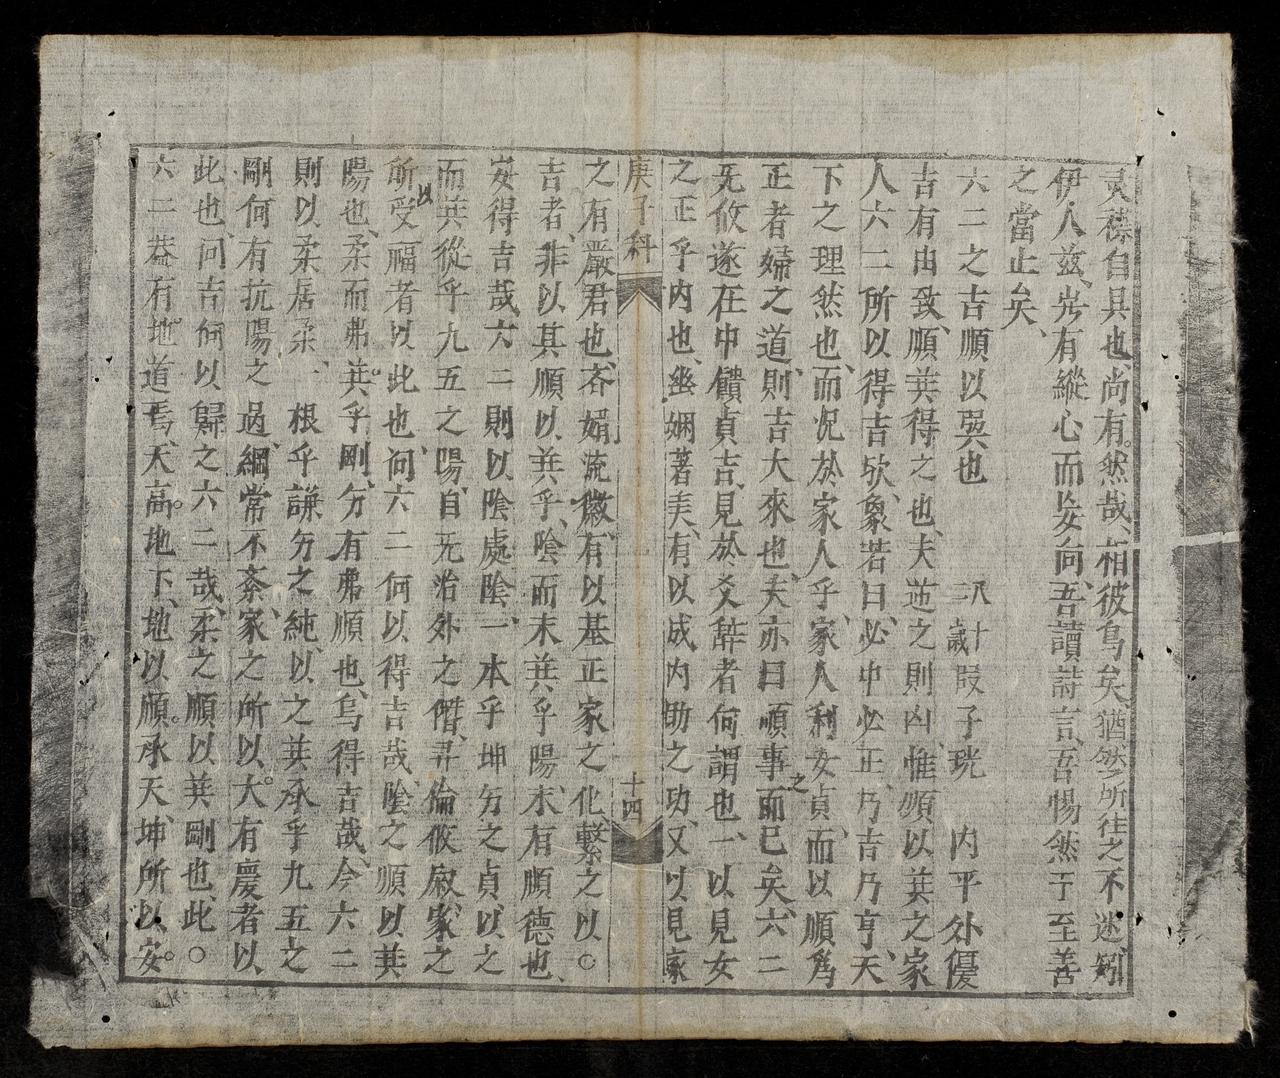 灵襟自具也、尚有然哉、相彼鳥矣、猶然所往之不迷、矧
伊人兹、岂有縱心而妄向、吾讀詩言、吾惕然于至善
之當止矣、
六二之吉順以巽也 八十三歲段子珖 内平外優
吉有由致、順巽得之也、夫逆之則凶、惟順以巽之家
人六二所以得吉欤、象若曰、必中必正、乃吉乃亨、天
下之理然也、而况於家人乎、家人利女貞、而以順爲
正者婦之道、則吉大來也、夫亦曰順事之而已矣、六二
无攸遂在中饋貞吉、見於爻辞者何謂也、一以見女
之正乎内也、幽嫻著美、有以成内助之功、又以見家
庚子科 十四
之有嚴君也、杏娟流徽、有以基正家之化繫之以○
吉者、非以其順以巽乎、陰而未巽乎陽、未有順德也、
安得吉哉、六二則以陰處陰、一本乎坤方之貞、以之
而巽從乎九五之陽、自无治外之僭、彛倫攸叙、家之
所以受福者以此也、问六二何以得吉哉、陰之順以巽
陽也、柔而弗巽乎剛、分有弗順也、烏得吉哉、今六二
則以柔居柔、一根乎謙方之純、以之巽承乎九五之
剛何有抗陽之過、綱常不紊、家之所以大有慶者以
此也、问吉何以歸之六二哉、柔之順以巽剛也、此○
六二葢有地道焉、天高地下、地以順承天、坤所以安